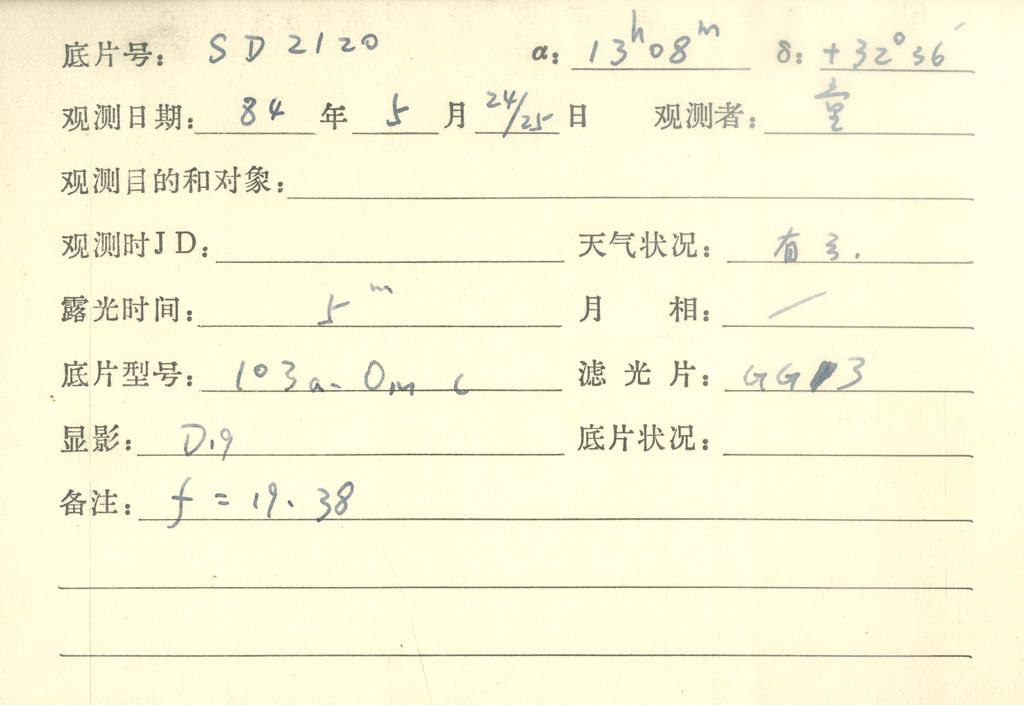 底片号: SD2120 α: 13ʰ08ᵐ δ: +32°36′
观测日期: 84 年 5 月 24/25 日 观测者:
观测目的和对象:
观测时JD: 天气状况: 有云.
露光时间: 5ᵐ 月 相: /
底片型号: 103a-O 滤光片: GG13
显影: D19 底片状况:
备注: f = 19.38